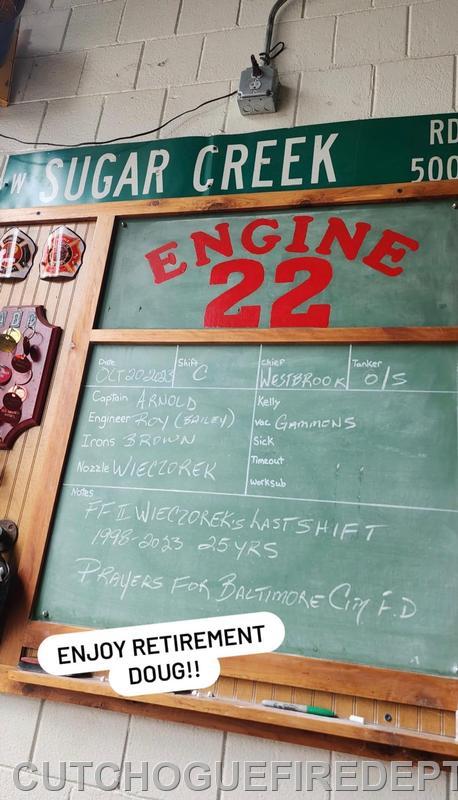 W SUGAR CREEK RD
500
ENGINE
22
Date OCT 20 2023 Shift C Chief WESTBROOK Tanker O/S
Captain ARNOLD Kelly
Engineer ROY (BAILEY) vac GAMMONS
Irons BROWN Sick
Nozzle WIECZOREK Timeout
worksub
Notes
FF II WIECZOREK's LAST SHIFT
1998-2023 25 YRS
PRAYERS FOR BALTIMORE CITY F.D
ENJOY RETIREMENT
DOUG!!
CUTCHOGUEFIREDEPT